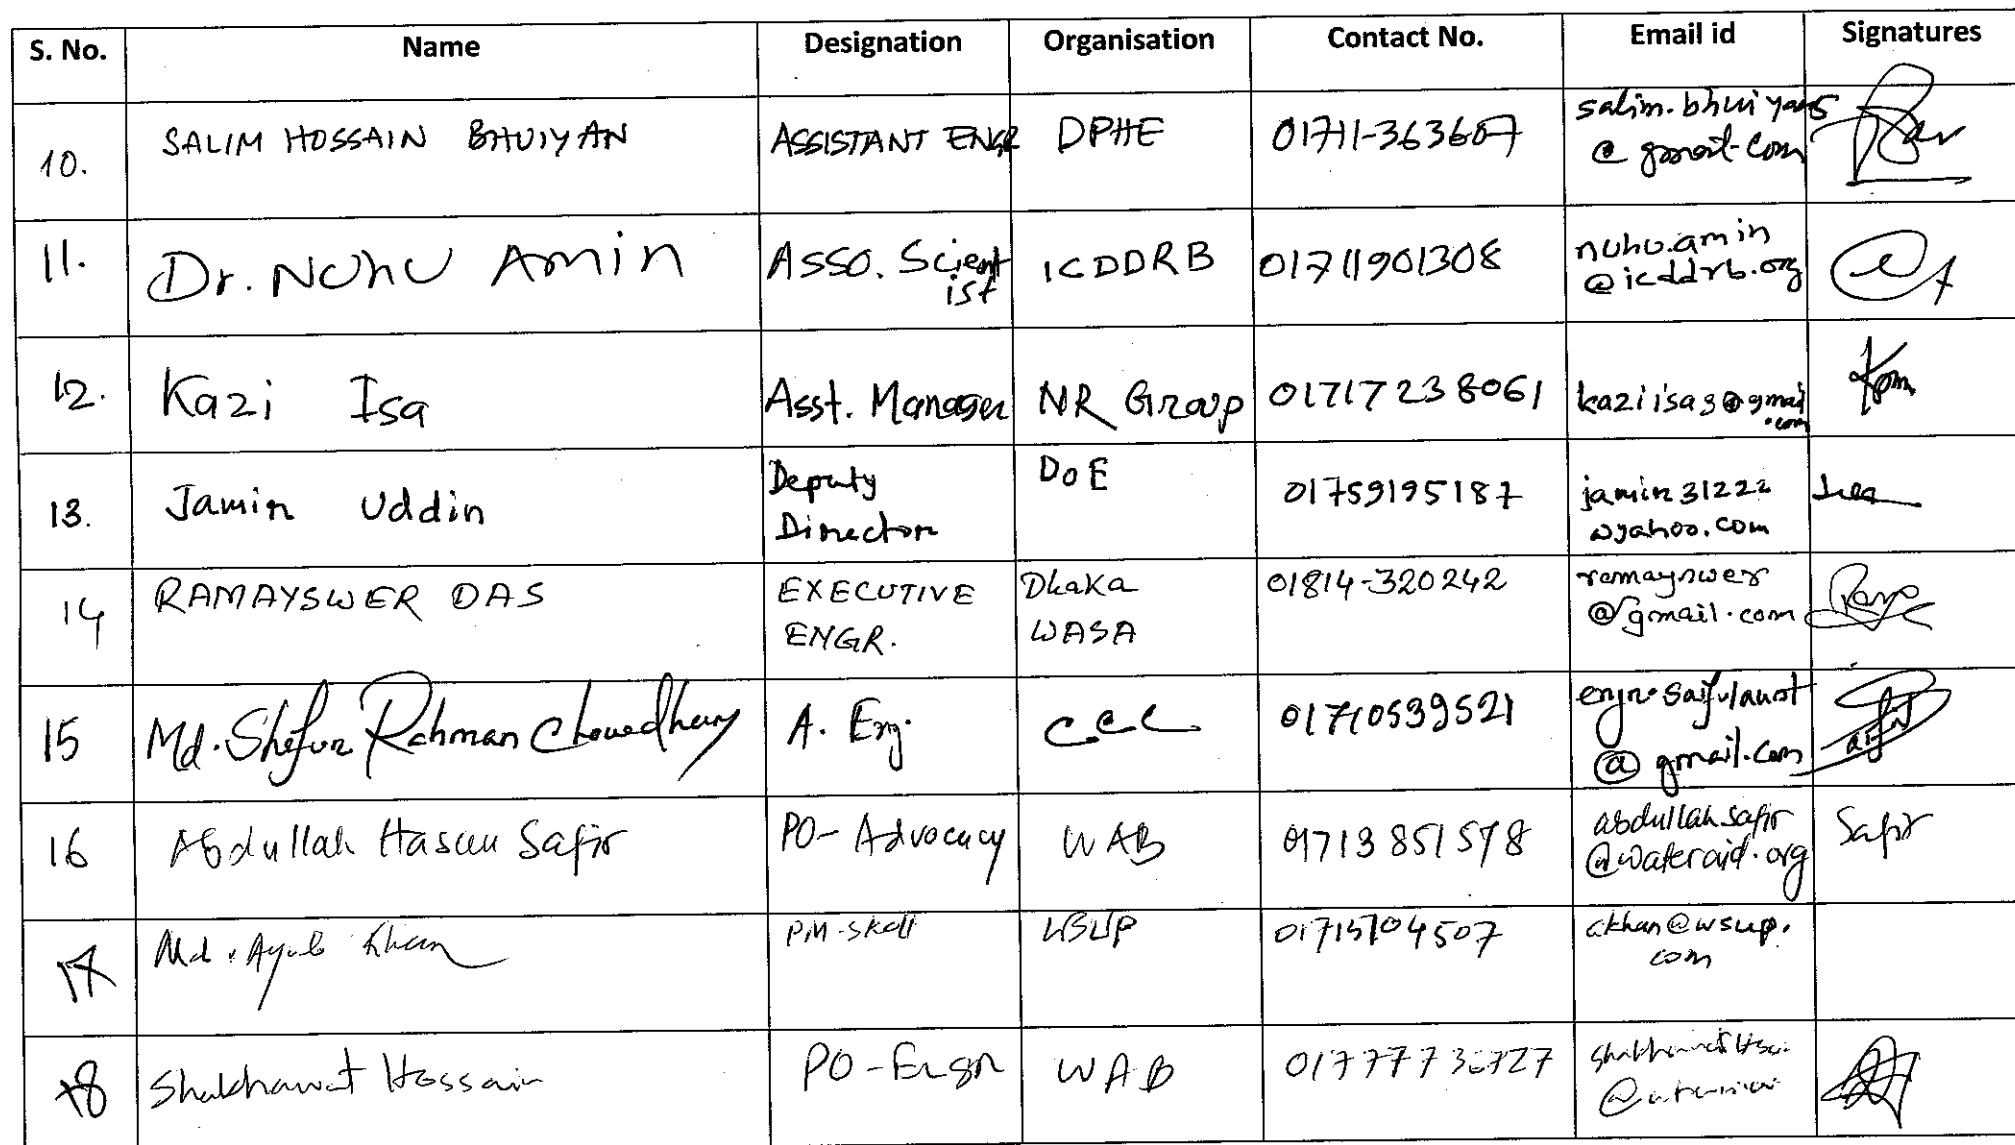 S. No. Name Designation Organisation Contact No. Email id Signatures
10. SALIM HOSSAIN BHUIYAN ASSISTANT ENGR DPHE 01711-363607 salim.bhuiyan5
@ gmail.com
11. Dr. NUHU Amin ASSO. Scient ICDDRB 01711901308 nuhu.amin
ist @icddrb.org
12. Kazi Isa Asst. Manager NR Group 01717238061 kaziisa3@gmail
.com
13. Jamin Uddin Deputy DoE 01759195187 jamin31222
Director @yahoo.com
14 RAMAYSWER DAS EXECUTIVE Dhaka 01814-320242 ramayswer
ENGR. WASA @gmail.com
15 Md. Shefur Rahman Chowdhury A. Eng. CCC 01710539521 engr.saifulaust
@ gmail.com
16 Abdullah Hasan Safir PO-Advocacy WAB 01713851578 abdullah.safir Safir
@wateraid.org
17 Md. Ayub Khan PM-Skill WSUP 01715104507 akhan@wsup.
com
18 Shakhawat Hossain PO-Engr WAB